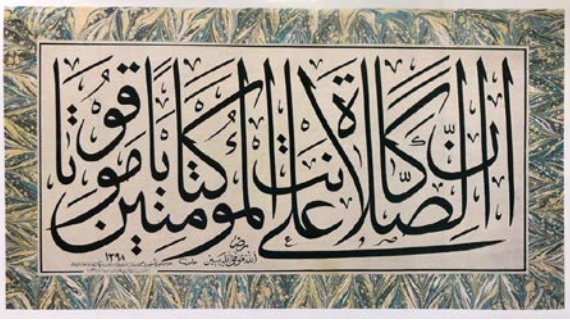 انّ الصّلاة كانت على المؤمنين كتابا موقوتا
١٣٩٨